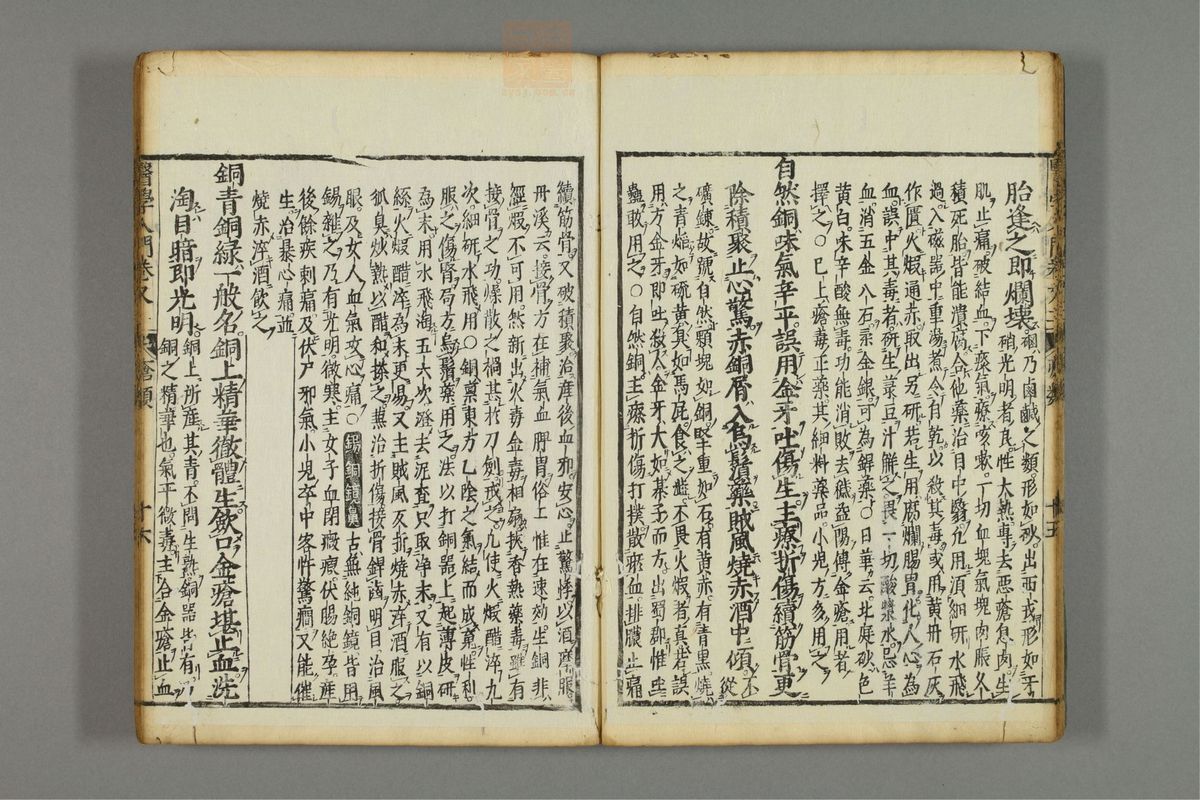 胎逢之即爛壞硇乃鹵鹹之類形如砂出西戎形如牙
硝光明者良性大熱毒去惡瘡息肉生
肌止痛破結血下痰氣療咳嗽一切血塊氣塊肉脹久
積死胎皆能潰腐合他藥治目中翳凡用須細研水飛
過入磁器中重湯煮令自乾以殺其毒或用黃丹石灰
作匱火煅通赤取出另研若生用腐爛腸胃化人心為
血誤中其毒者研生菉豆汁解之畏一切酸漿水忌羊
血消五金八石金銀可為銲藥○日華云北庭砂色
黃白味辛酸無毒功能消敗去穢益陽傅金瘡用者
擇之○已上瘡毒正藥其細料藥品小兒方多用之
自然銅味氣辛平誤用金牙吐傷生主療折傷續筋骨更
除積聚止心驚赤銅屑入烏鬚藥賊風燒赤酒中傾不從
礦鍊故號自然顆塊如銅堅重如石有黃赤有青黑燒
之青焰如硫黃臭如馬屁食之澁不畏火煅者真若誤
用方金牙即吐殺人金牙大如棊子而方出蜀郡惟
蠱敢用之○自然銅主療折傷打撲散瘀血排膿止痛
續筋骨又破積聚治產後血邪安心止驚悸以酒摩服
丹溪云接骨方在補氣血脾胃俗工惟在速効生銅非
經煅不可用然新出火毒金毒相扇挾香熱藥毒雖有
接骨之功燥散之禍甚於刀劍戒之凡使火煅醋淬九
次細研水飛用○銅稟東方乙陰之氣結而成魄性利
服之傷腎局方烏鬚藥用之法以打銅器上起薄皮研
為末用水飛淘五六次澄去泥查只取淨末又有以銅
絲火煅醋淬為末更易又主賊風反折燒赤淬酒服之
狐臭炒熱以醋和搽之兼治折傷接骨銲齒明目治風
眼及女人血氣攻心痛○錫銅鏡鼻古無純銅鏡皆用
錫雜之乃有光明微寒主女子血閉癥瘕伏腸絕孕產
後餘疾刺痛及伏尸邪氣小兒卒中客忤驚癇又能催
生治暴心痛並
燒赤淬酒飲之
銅青銅綠一般名銅上精華徹體生斂口金瘡堪止血洗
淘目暗即光明銅上所產其青不問生熟銅器皆有
銅之精華也氣平微毒主合金瘡止血
醫學入門卷
瘡類
十六
瘡類
十五